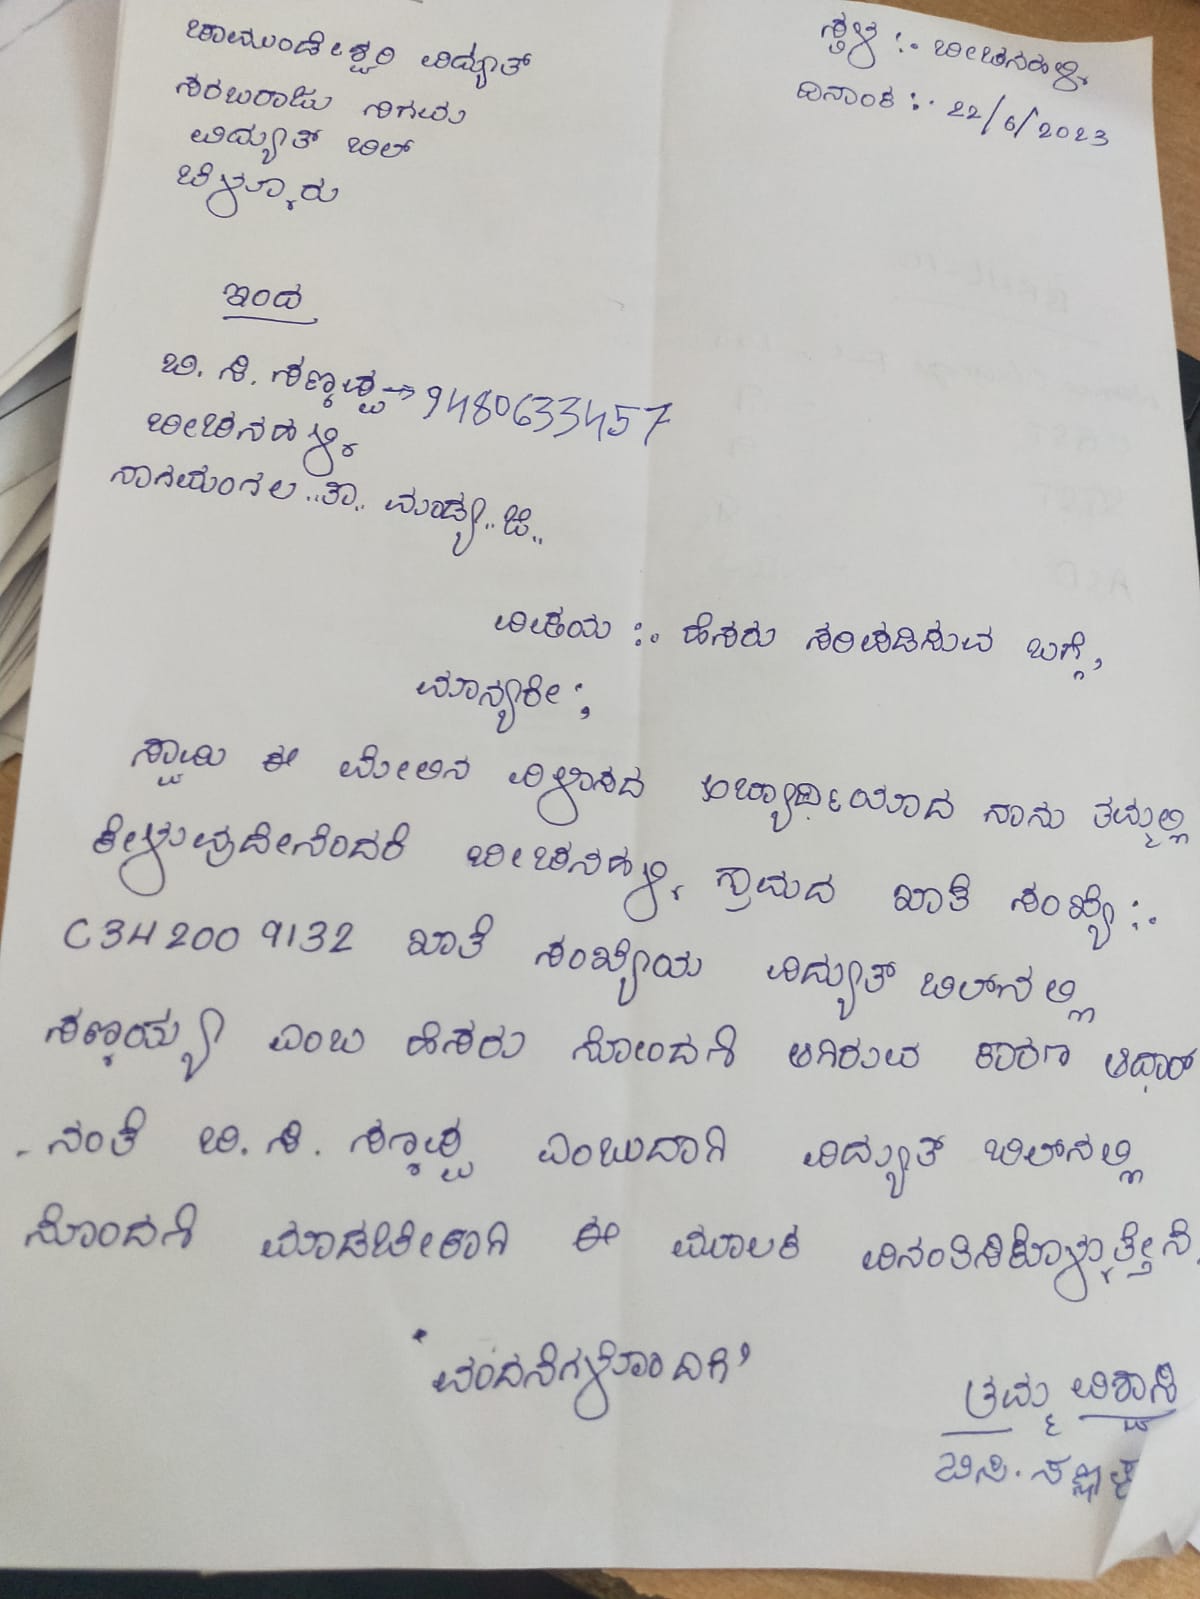 ಚಾಮುಂಡೇಶ್ವರಿ ವಿದ್ಯುತ್
ಸರಬರಾಜು ನಿಗಮ
ವಿದ್ಯುತ್ ಬಿಲ್
ಬೆಳ್ಳೂರು
ಸ್ಥಳ :. ಬೀಚನಹಳ್ಳಿ
ದಿನಾಂಕ :. 22/6/2023
ಇಂದ
ಬಿ. ಸಿ. ಸಣ್ಣಪ್ಪ → 9480633457
ಬೀಚನಹಳ್ಳಿ
ನಾಗಮಂಗಲ..ತಾ.. ಮಂಡ್ಯ..ಜಿ..
ವಿಷಯ :. ಹೆಸರು ಸರಿಪಡಿಸುವ ಬಗ್ಗೆ,
ಮಾನ್ಯರೇ :,
ಸ್ವಾಮಿ ಈ ಮೇಲಿನ ವಿಳಾಸದ ಅಭ್ಯರ್ಥಿಯಾದ ನಾನು ತಮ್ಮಲ್ಲಿ
ಕೇಳುವುದೇನೆಂದರೆ ಬೀಚನಹಳ್ಳಿ ಗ್ರಾಮದ ಖಾತೆ ಸಂಖ್ಯೆ :.
C342009132 ಖಾತೆ ಸಂಖ್ಯೆಯ ವಿದ್ಯುತ್ ಬಿಲ್‌ನಲ್ಲಿ
ಸಣ್ಣಯ್ಯ ಎಂಬ ಹೆಸರು ನೋಂದಣಿ ಆಗಿರುವ ಕಾರಣ ಆಧಾರ್
-ನಂತೆ ಬಿ. ಸಿ. ಸಣ್ಣಪ್ಪ ಎಂಬುದಾಗಿ ವಿದ್ಯುತ್ ಬಿಲ್‌ನಲ್ಲಿ
ನೊಂದಣಿ ಮಾಡಬೇಕಾಗಿ ಈ ಮೂಲಕ ವಿನಂತಿಸಿಕೊಳ್ಳುತ್ತೇನೆ.
'ವಂದನೆಗಳೊಂದಿಗೆ'
ತಮ್ಮ ವಿಶ್ವಾಸಿ
ಬಿ.ಸಿ. ಸಣ್ಣಪ್ಪ